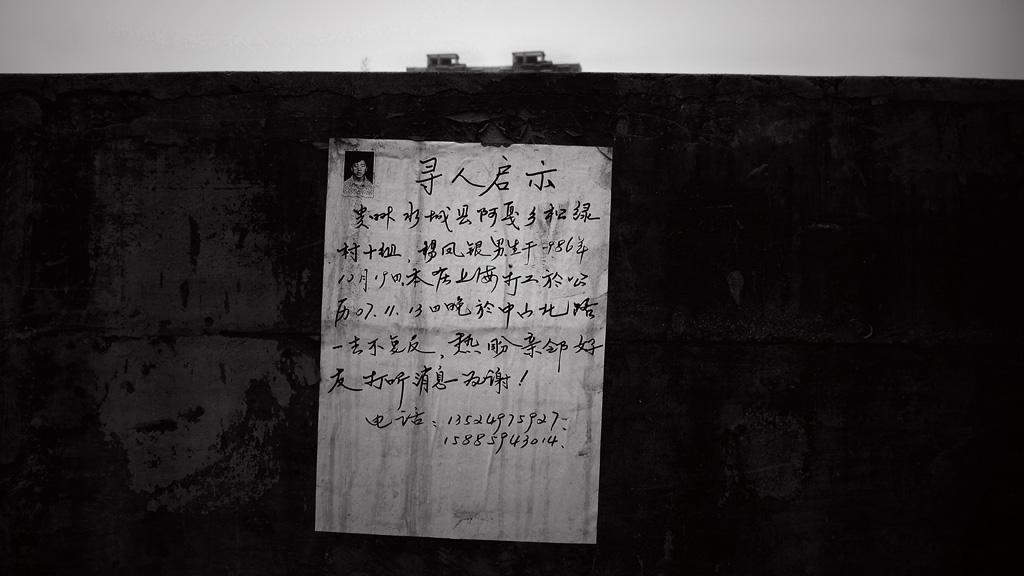 寻人启示
贵州水城县阿戛乡和绿
村十组，杨凤银男生于1986年
10月19日本在上海打工於公
历07.11.13日晚於中山北路
一去不复反，热盼亲邻好
友打听消息一为谢！
电话：13524975927.
15885943014.